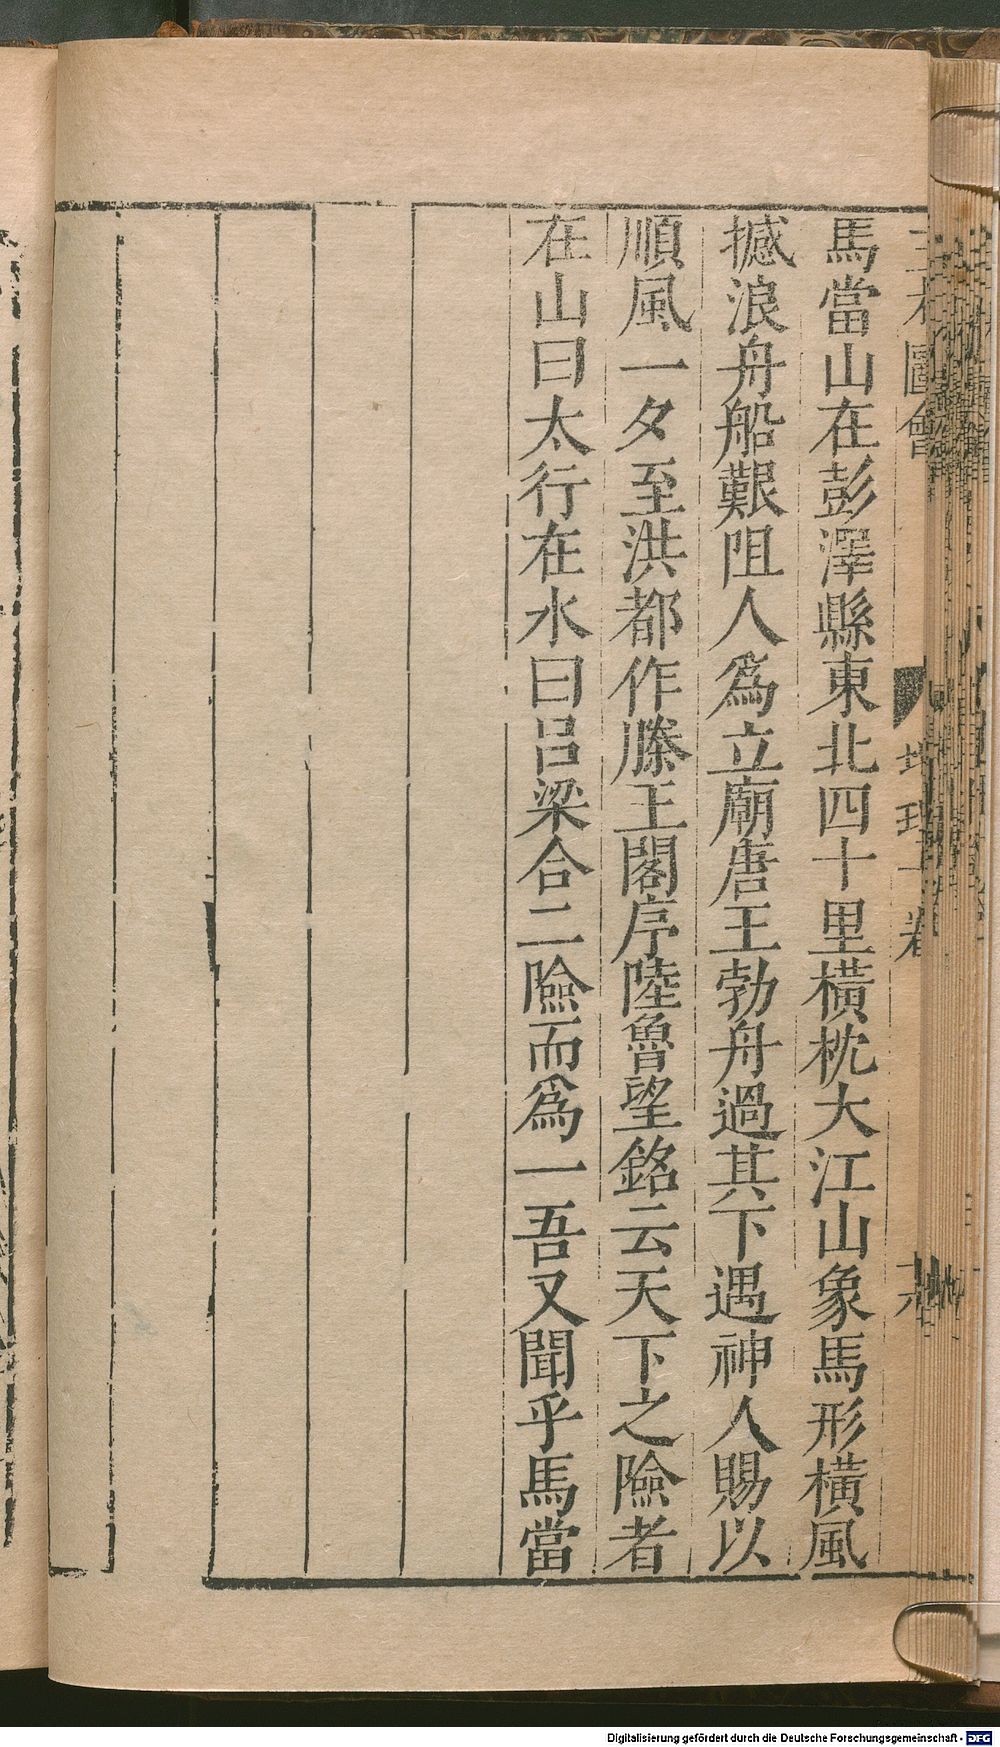 馬當山在彭澤縣東北四十里橫枕大江山象馬形橫風
撼浪舟船艱阻人爲立廟唐王勃舟過其下遇神人賜以
順風一夕至洪都作滕王閣序陸魯望銘云天下之險者
在山曰太行在水曰呂梁合二險而爲一吾又聞乎馬當
Digitalisierung gefördert durch die Deutsche Forschungsgemeinschaft - DFG